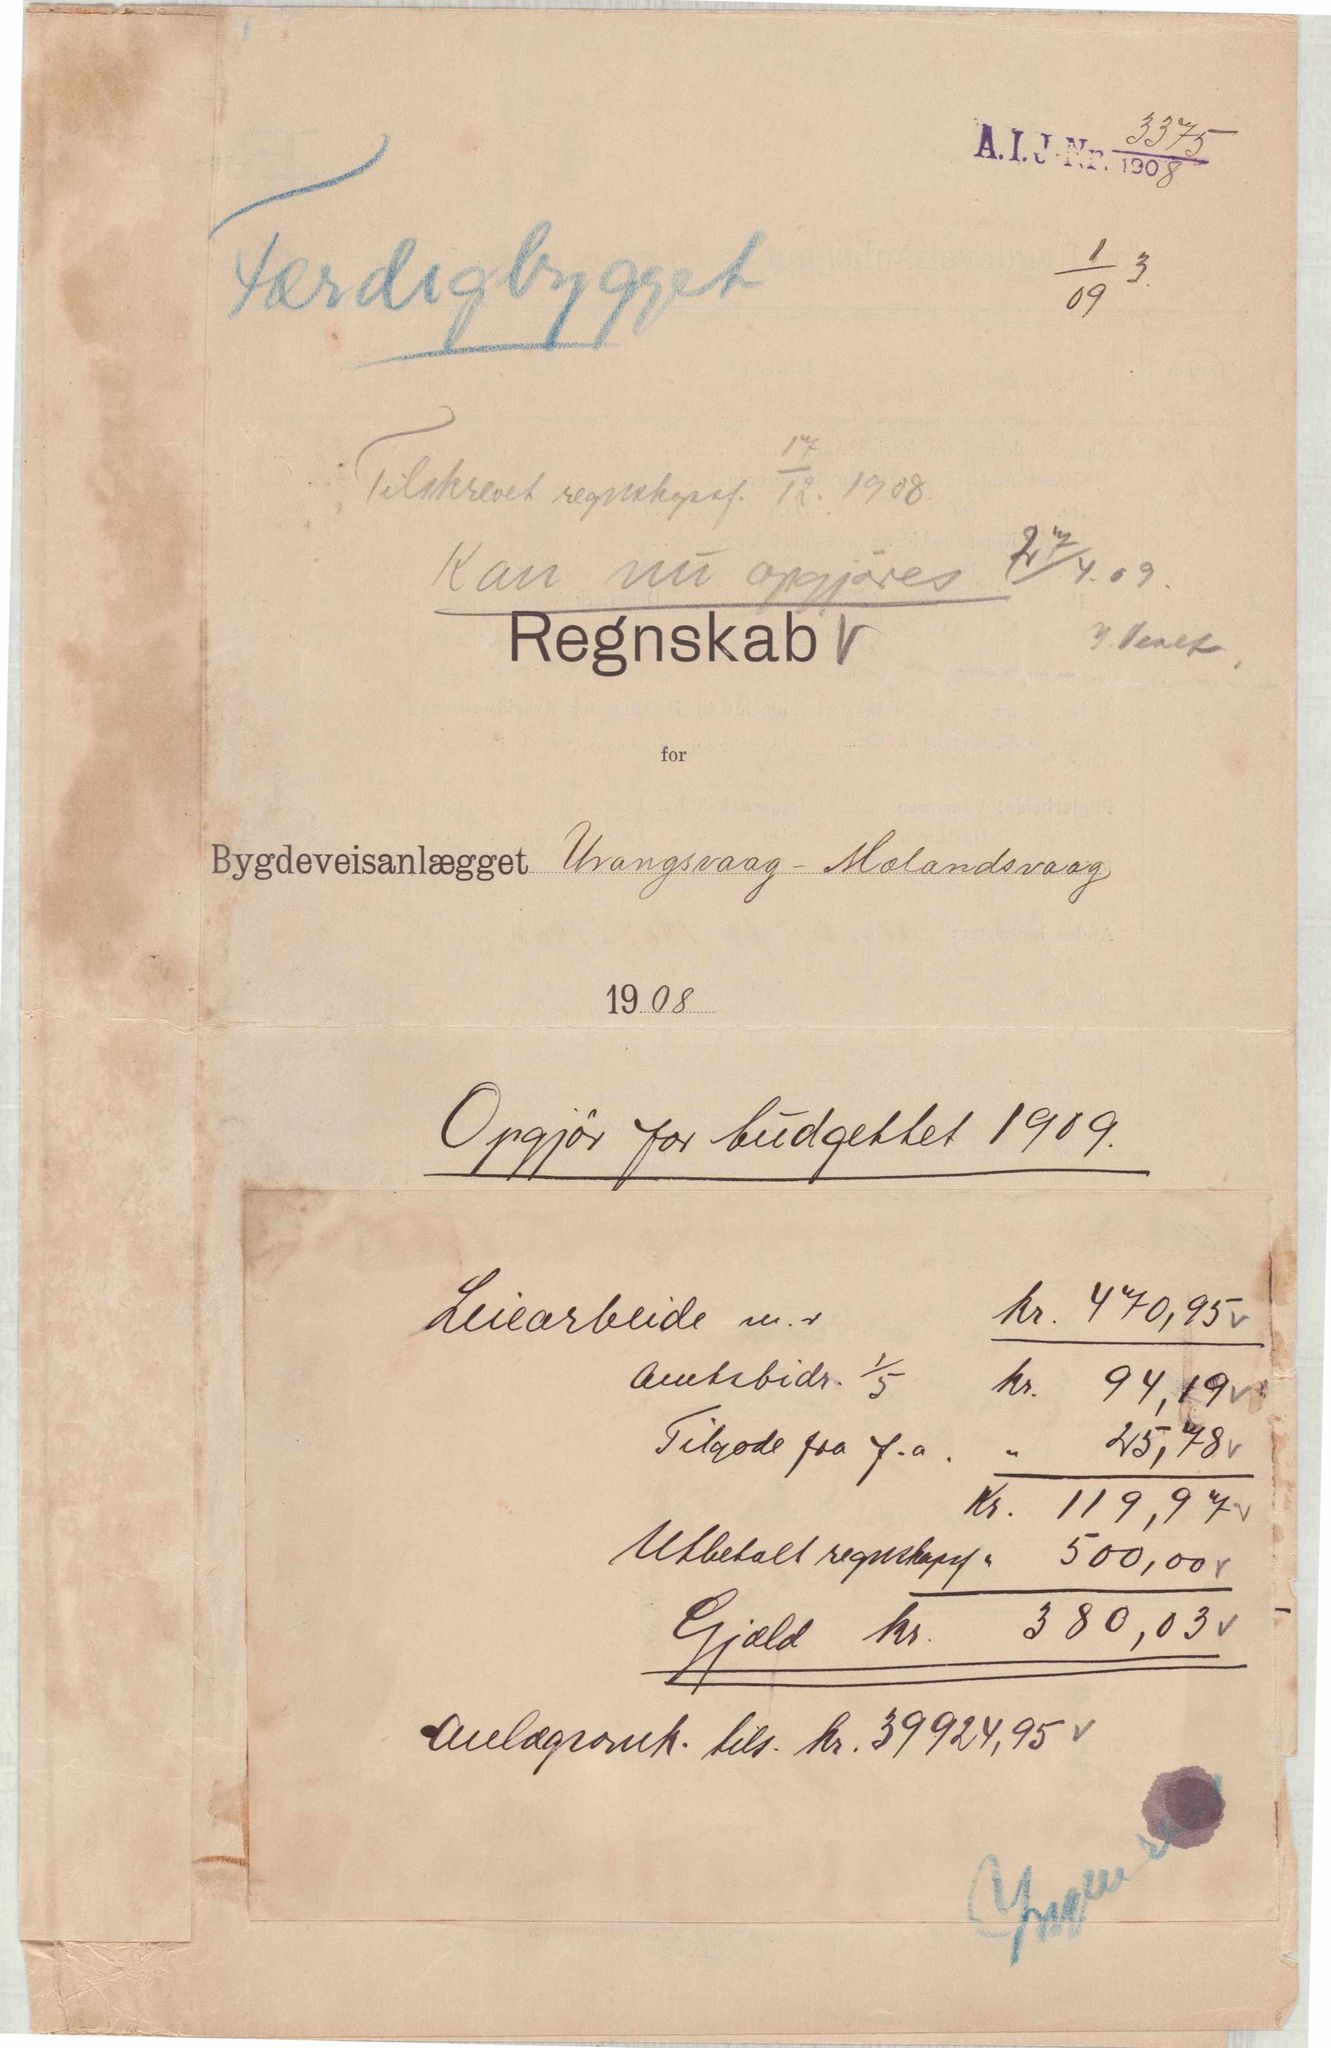 A. I. J.-Nr. 3375/1908
Færdigbygget
1/09 3.
Tilskrevet regnskapsf. 17/12. 1908.
Kan nu opgjøres 27/4.09.
Regnskab
for
Bygdeveisanlægget Urangsvaag - Mælandsvaag
1908
Opgjør for budgettet 1909.
Leiearbeide m.v kr. 470,95 v
Amtsbidr. 1/5 kr. 94,19 v
Tilgode fra f.a. " 25,78 v
Kr. 119,97 v
Utbetalt regnskapsf " 500,00 v
Gjæld kr. 380,03 v
Anlægsomk. tils. kr. 39924,95 v